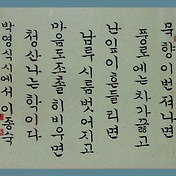 묵향이 번져나면
풍로에는 차가 끓고
난 잎이 흔들리면
남루 시름 벗어지고
마음도 조촐히 비우면
청산 나는 학이다
박영식 시에서 이종국